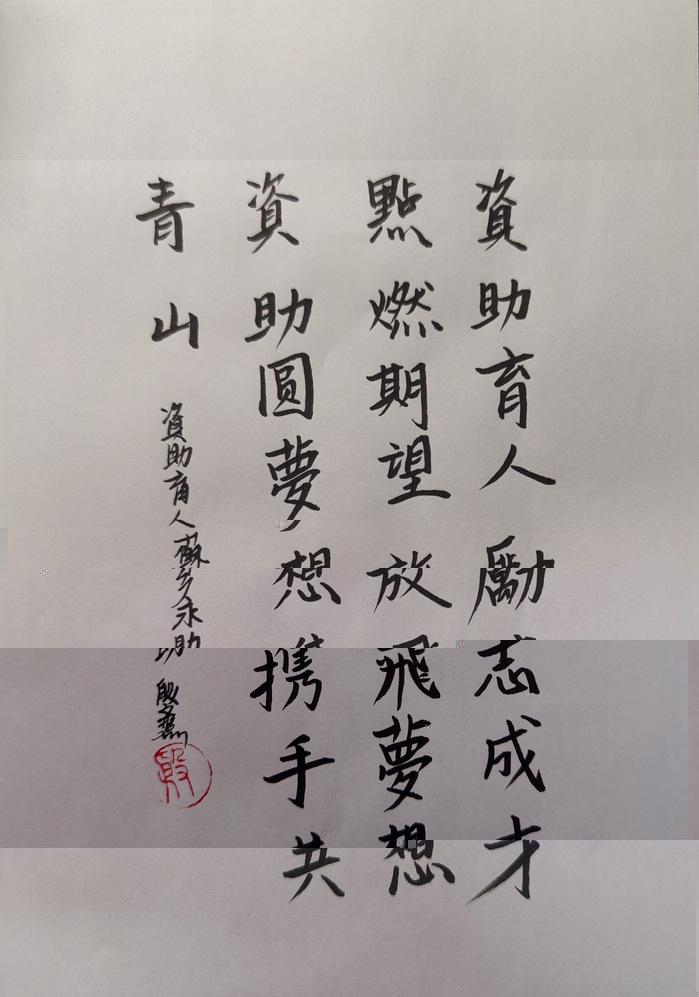 資助育人勵志成才
點燃期望放飛夢想
資助圓夢想携手共
青山
資助育人蘇
助
殷
殷